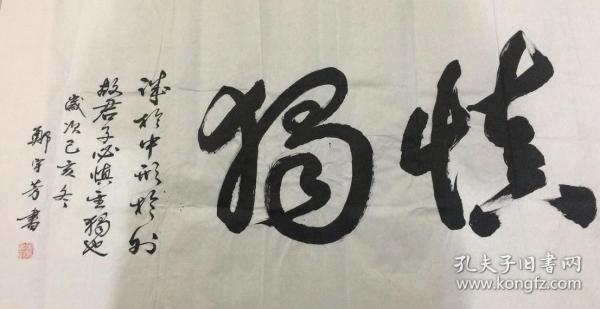 慎獨
誠於中形於外
故君子必慎其獨也
歲次己亥冬
鄭宇芳書
孔夫子旧書网
www.kongfz.com